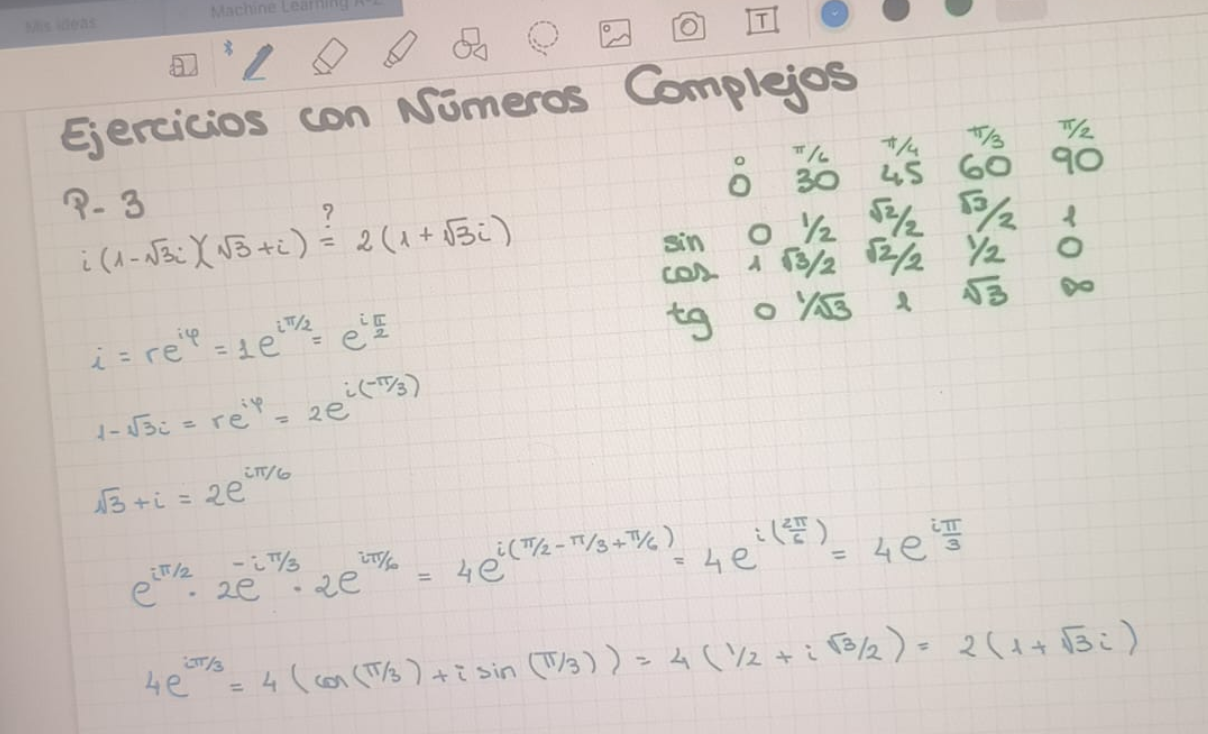 Mis ideas
Machine Learning A-Z
T
Ejercicios con Números Complejos
P-3
i(1-√3i)(√3+i) ?= 2(1+√3i)
0° 30 45 60 90
π/6 π/4 π/3 π/2
sin 0 1/2 √2/2 √3/2 1
cos 1 √3/2 √2/2 1/2 0
tg 0 1/√3 1 √3 ∞
i = re^{iφ} = 1e^{iπ/2} = e^{i π/2}
1-√3i = re^{iφ} = 2e^{i(-π/3)}
√3+i = 2e^{iπ/6}
e^{iπ/2} · 2e^{-iπ/3} · 2e^{iπ/6} = 4e^{i(π/2-π/3+π/6)} = 4e^{i(2π/6)} = 4e^{i π/3}
4e^{iπ/3} = 4(cos(π/3)+i sin(π/3)) = 4(1/2 + i √3/2) = 2(1+√3i)